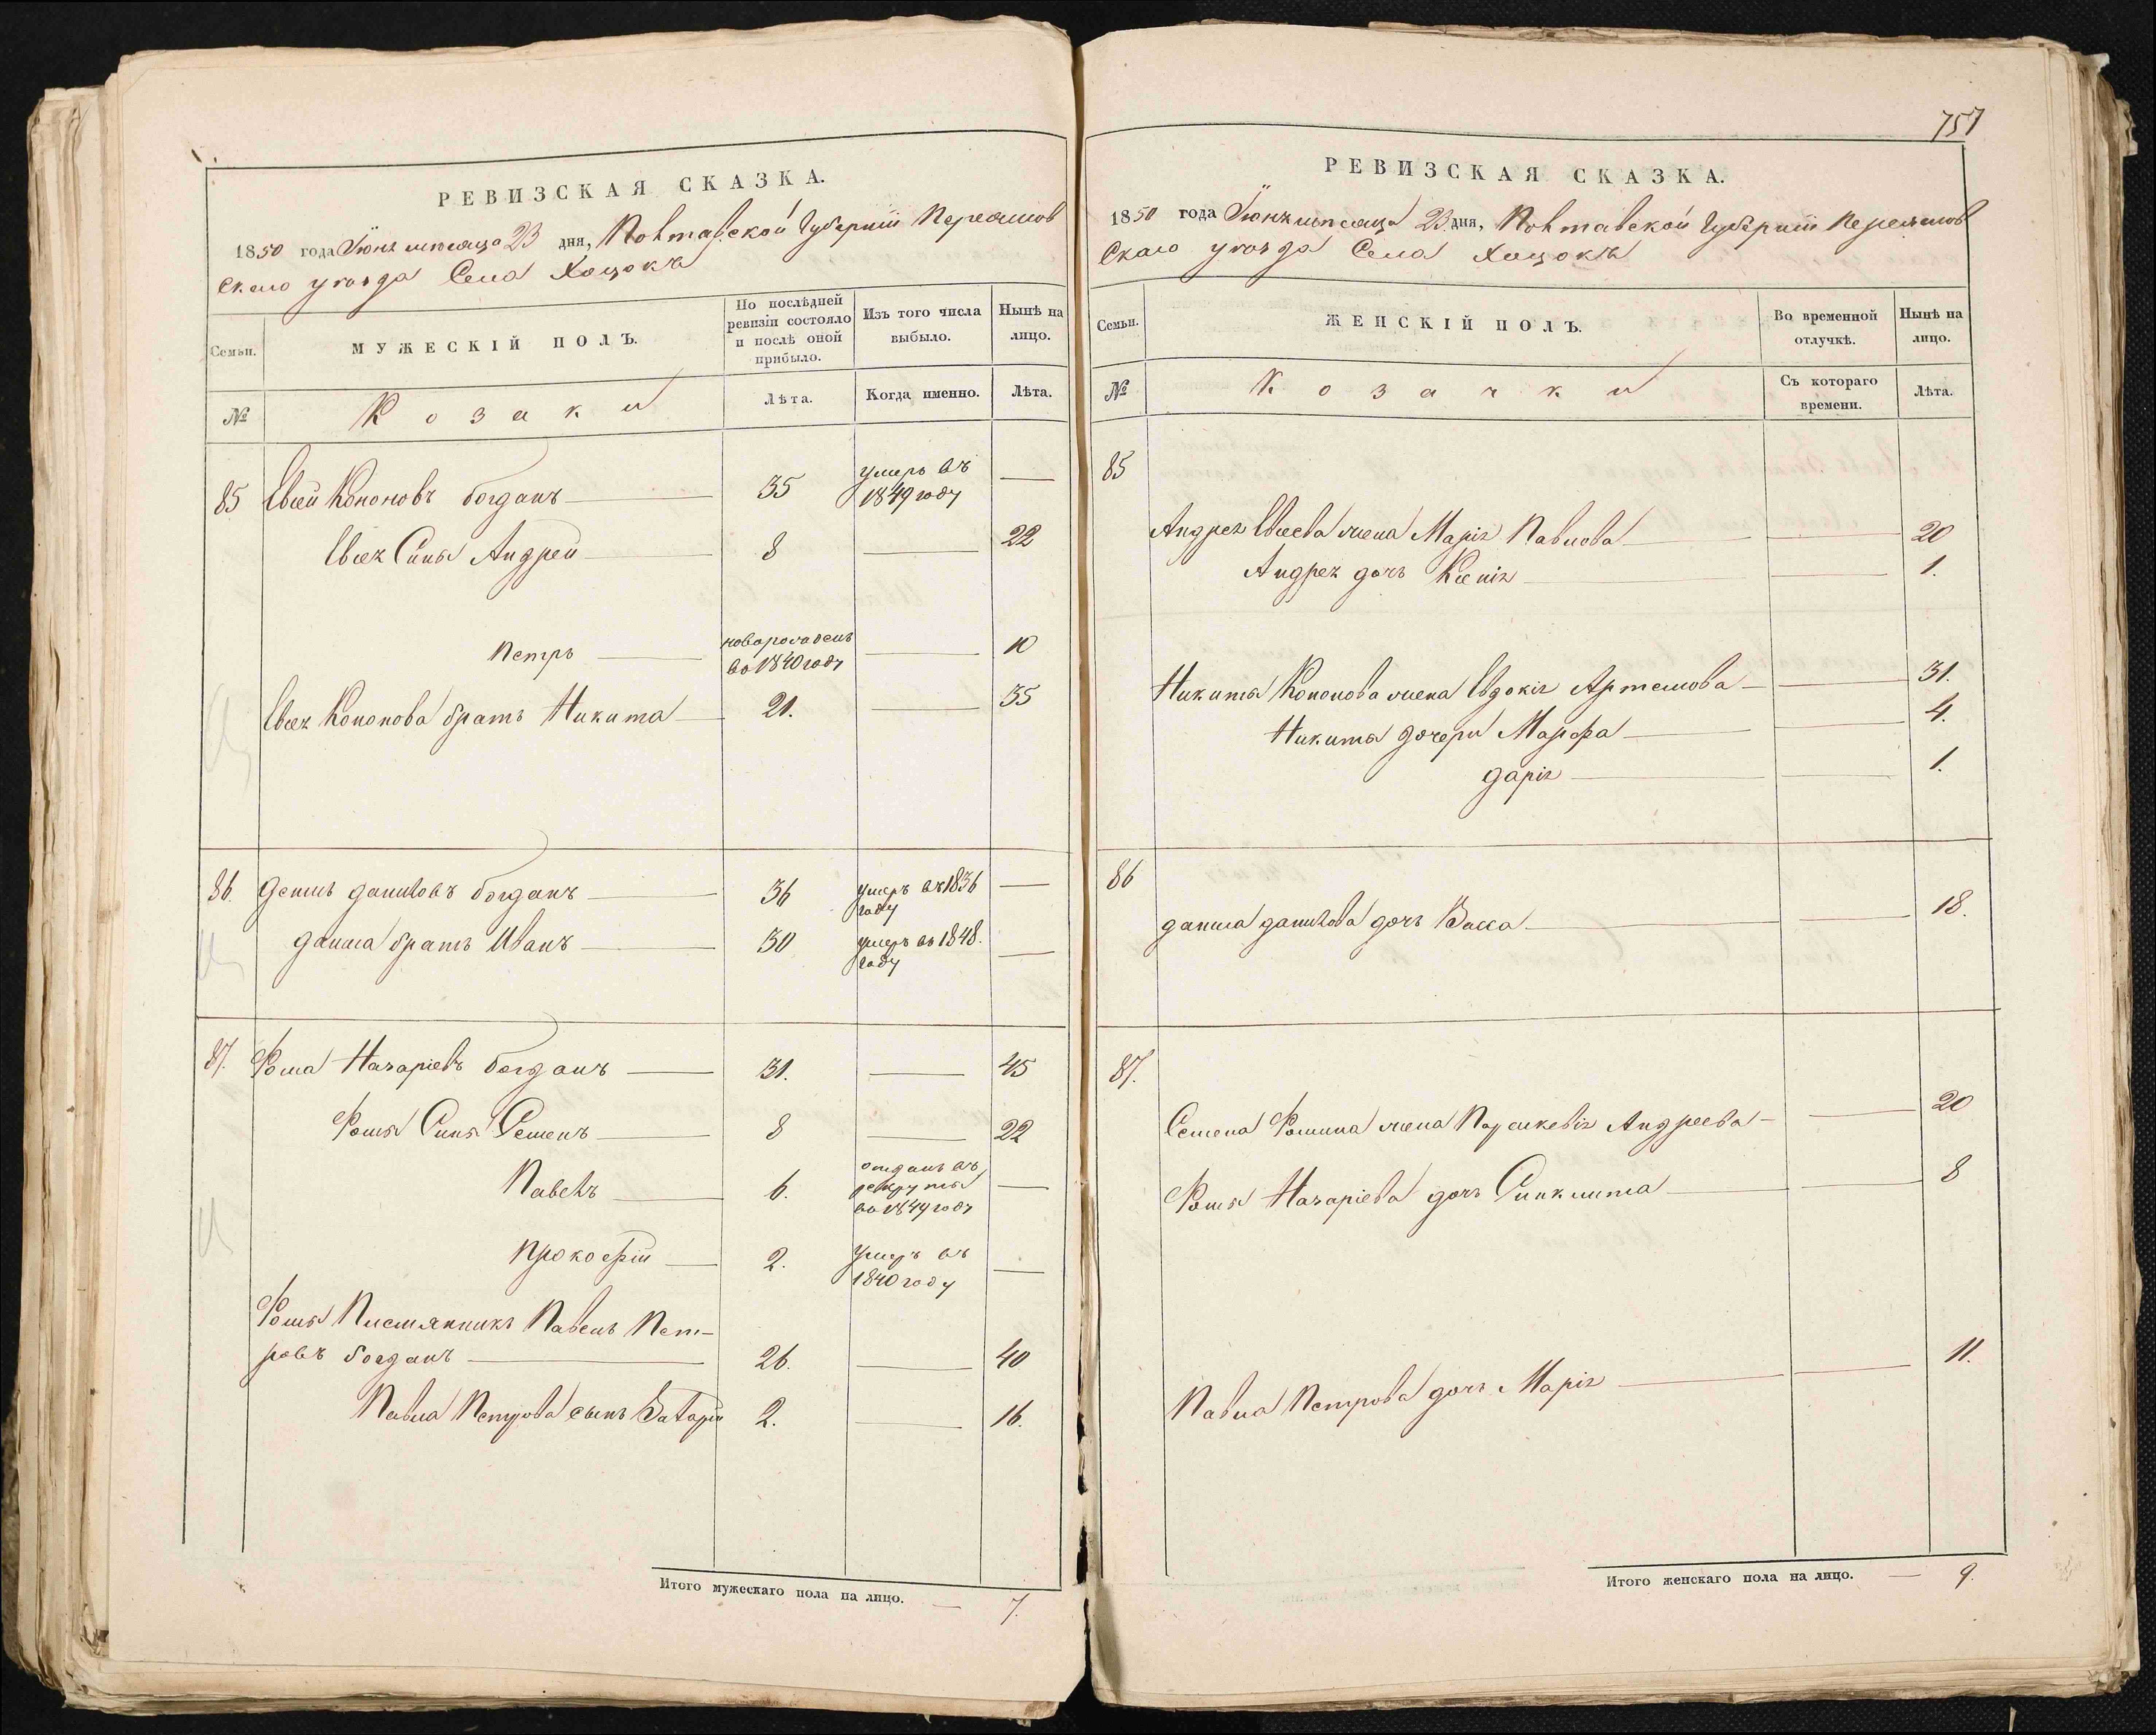 РЕВИЗСКАЯ СКАЗКА.
1850 года Іюня мѣсяца 23 дня, Полтавской Губерніи Переяслов
скаго уѣзда Села Хоцокъ
Семьи.
МУЖЕСКІЙ ПОЛЪ.
По послѣдней ревизіи состояло и послѣ оной прибыло.
Изъ того числа выбыло.
Нынѣ на лицо.
№
Козаки
Лѣта.
Когда именно.
Лѣта.
85 Евсей Кононовъ Богданъ 35 умеръ въ 1849 году —
Евсея Сыны Андрей 8 — 22
Петръ новорожденъ во 1840 году — 10
Евсея Кононова братъ Никита 21. — 35
86. Данило Даниловъ Богданъ 36 умеръ въ 1836 году —
Данила братъ Иванъ 30 умеръ въ 1848. году —
87. Фома Назаріевъ Богданъ 31. — 45
Фомы Сыны Семенъ 8 — 22
Павелъ 6. отданъ въ рекруты во 1849 году —
Прокофій 2. умеръ въ 1840 году —
Фомы Племянникъ Павелъ Пет-
ровъ Богданъ 26. — 40
Павла Петрова сынъ Захарій 2. — 16.
Итого мужескаго пола на лицо. — 7.
757
РЕВИЗСКАЯ СКАЗКА.
1850 года Іюня мѣсяца 23 дня, Полтавской Губерніи Переяслов
скаго уѣзда Села Хоцокъ
Семьи.
ЖЕНСКІЙ ПОЛЪ.
Во временной отлучкѣ.
Нынѣ на лицо.
№
Козачки
Съ котораго времени.
Лѣта.
85
Андрея Евсеева жена Марія Павлова — 20
Андрея дочь Ксенія — 1.
Никиты Кононова жена Евдокія Артемова — 31.
Никиты дочери Марфа — 4.
Дарія — 1.
86
Данила Данилова дочь Васса — 18.
87.
Семена Фомина жена Параскевія Андреева — 20
Фомы Назаріева дочь Синклита — 8
Павла Петрова дочь Марія — 11.
Итого женскаго пола на лицо. — 9.